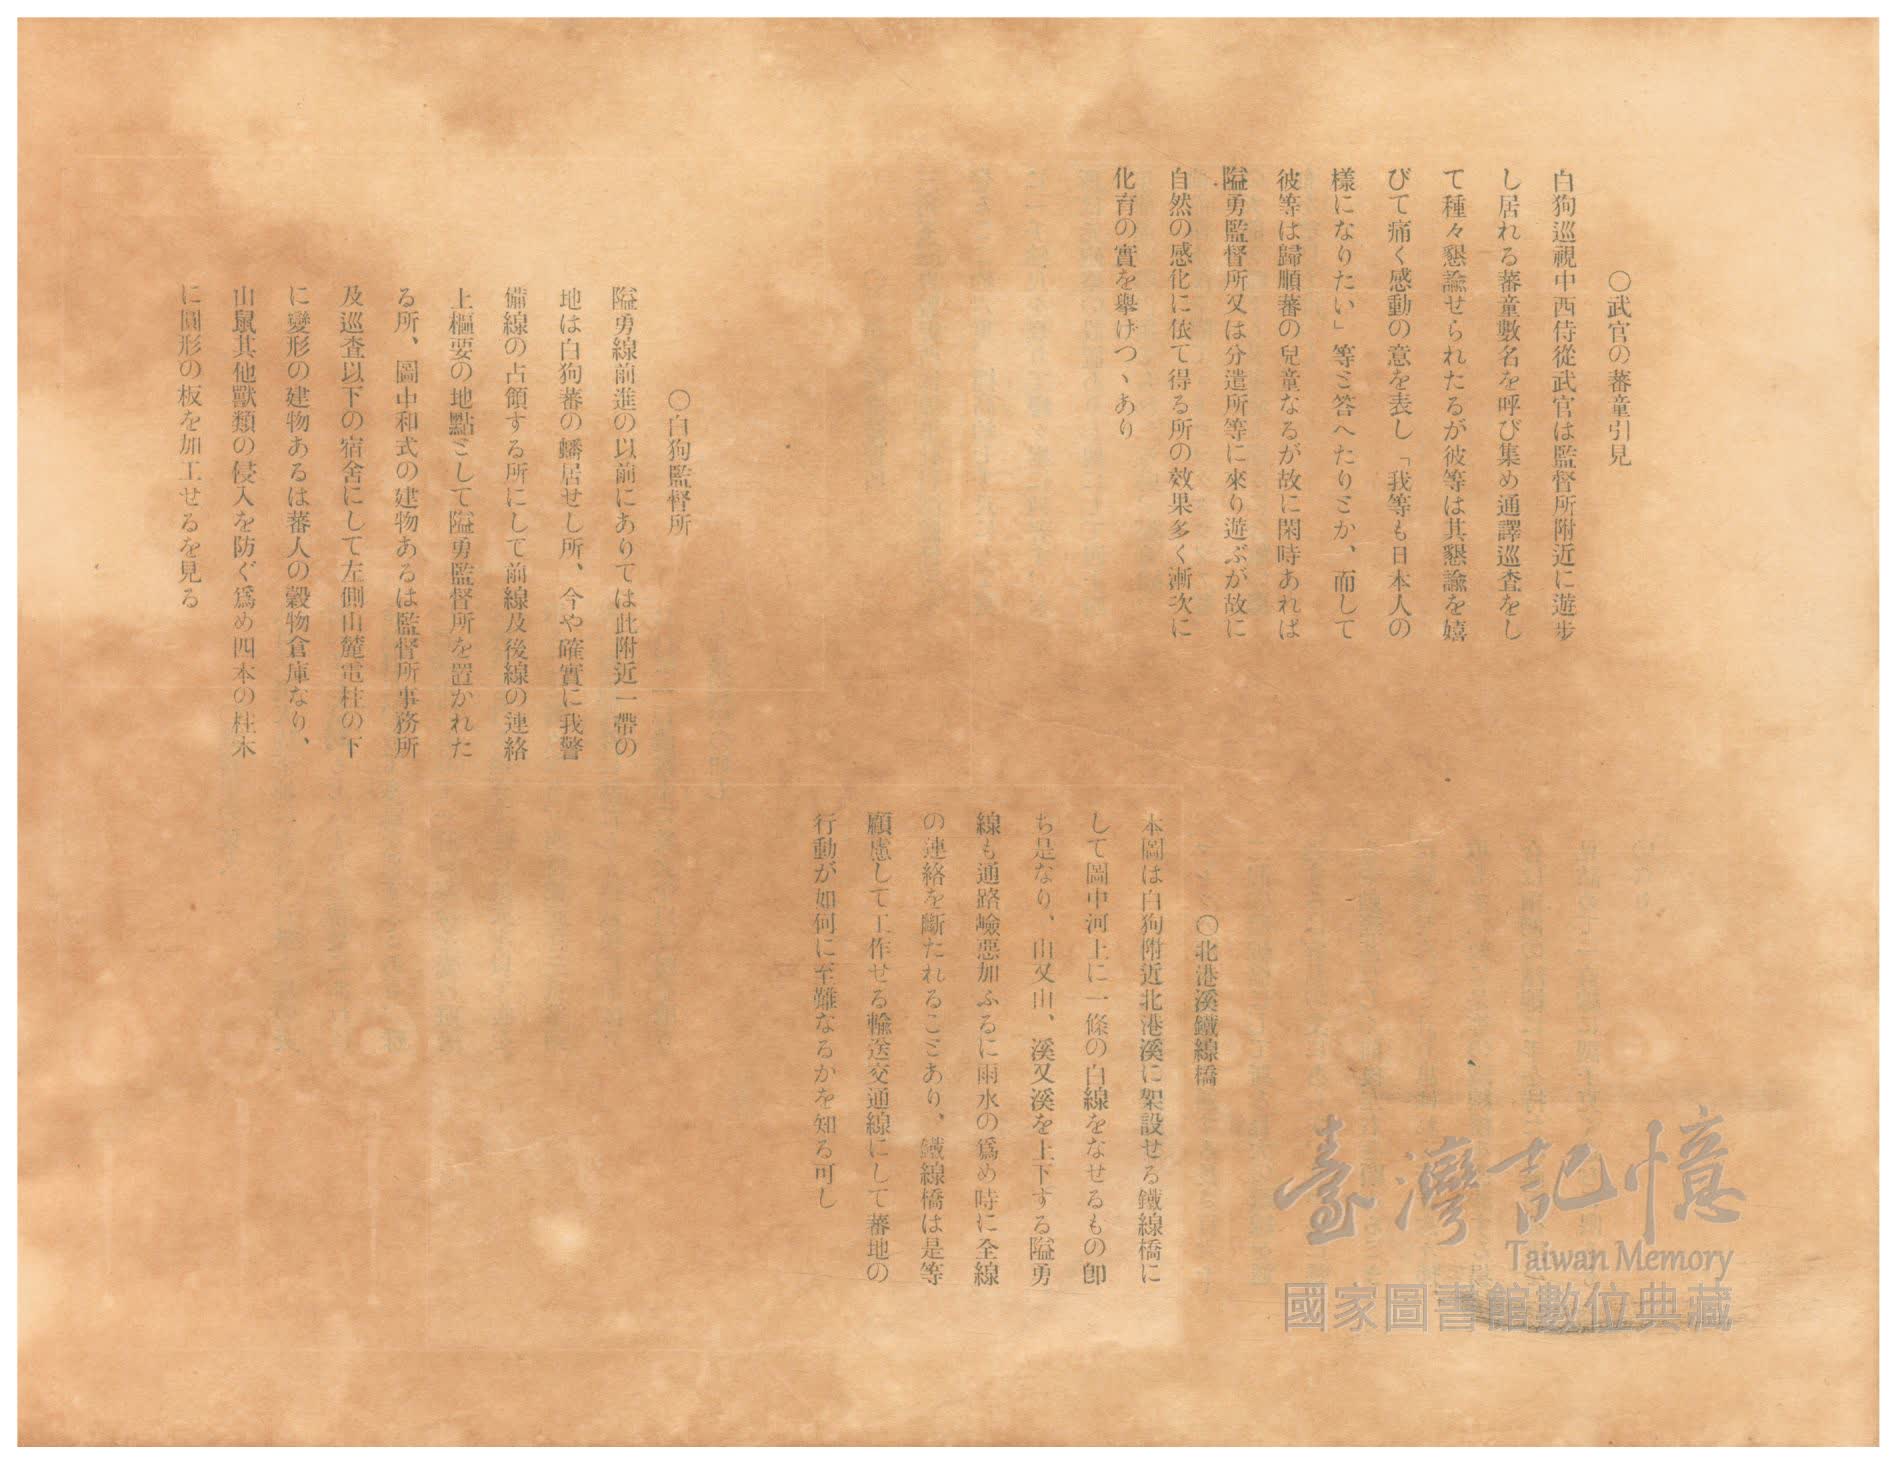 〇武官の蕃童引見
白狗巡視中西侍從武官は監督所附近に遊步
し居れる蕃童數名を呼び集め通譯巡査をし
て種々懇諭せられたるが彼等は其懇諭を嬉
びて痛く感動の意を表し「我等も日本人の
樣になりたい」等ミ答へたりミか、而して
彼等は歸順蕃の兒童なるが故に閑時あれば
隘勇監督所又は分遣所等に來り遊ぶが故に
自然の感化に依て得る所の效果多く漸次に
化育の實を擧げつヽあり
〇白狗監督所
隘勇線前進の以前にありては此附近一帶の
地は白狗蕃の蟠居せし所、今や確實に我警
備線の占領する所にして前線及後線の連絡
上樞要の地點ミして隘勇監督所を置かれた
る所、圖中和式の建物あるは監督所事務所
及巡査以下の宿舍にして左側山麓電柱の下
に變形の建物あるは蕃人の穀物倉庫なり、
山鼠其他獸類の侵入を防ぐ爲め四本の柱木
に圓形の板を加工せるを見る
〇北港溪鐵線橋
本圖は白狗附近北港溪に架設せる鐵線橋に
して圖中河上に一條の白線をなせるもの卽
ち是なり、山又山、溪又溪を上下する隘勇
線も通路嶮惡加ふるに雨水の爲め時に全線
の連絡を斷たれるこミあり、鐵線橋は是等
顧慮して工作せる輸送交通線にして蕃地の
行動が如何に至難なるかを知る可し
臺灣記憶
Taiwan Memory
國家圖書館數位典藏